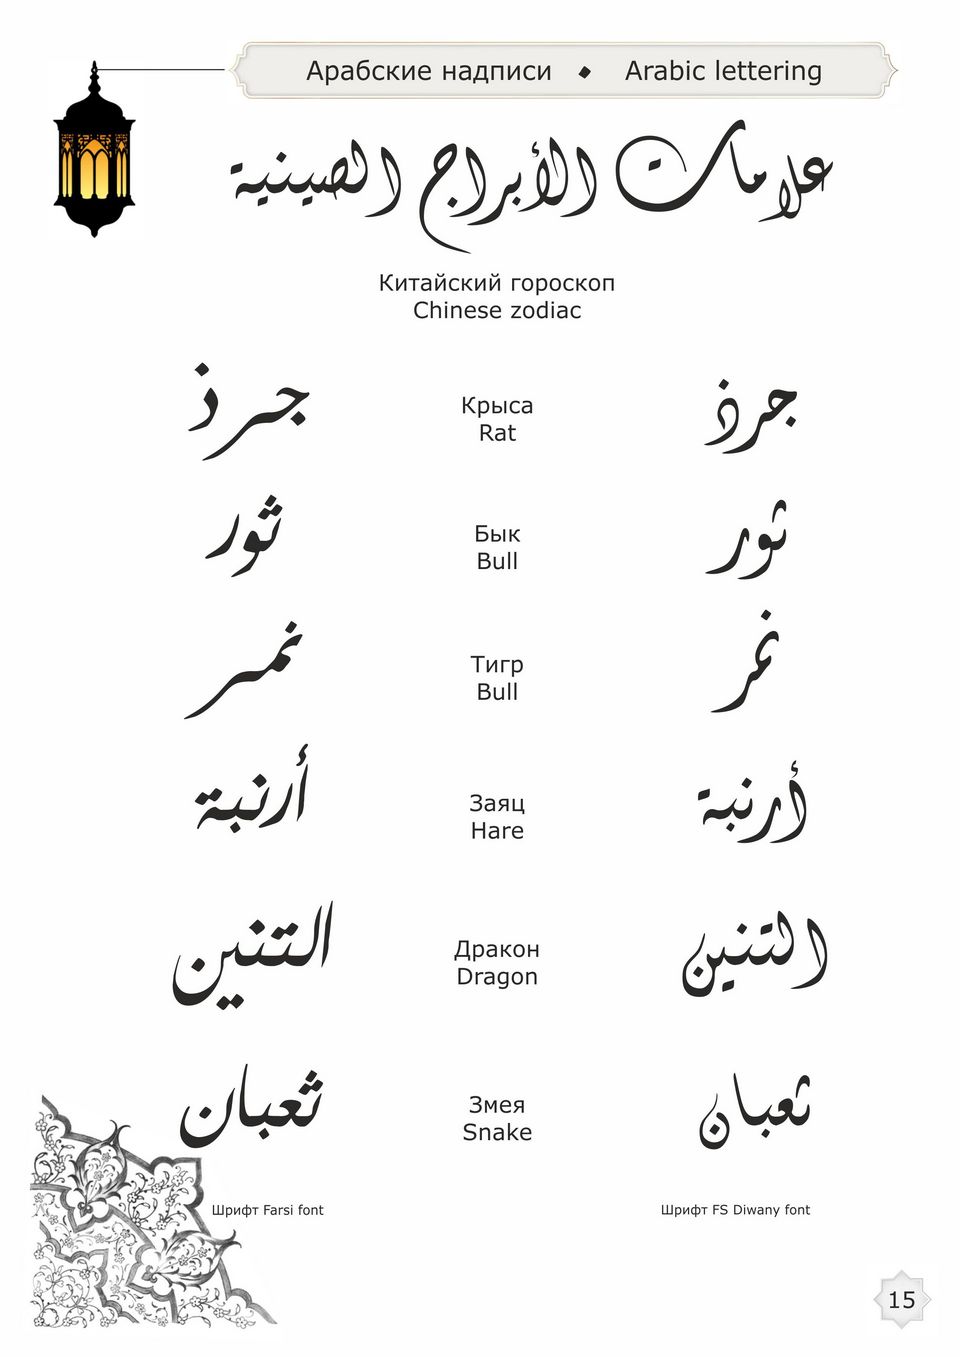 Арабские надписи ◆ Arabic lettering
علامات الأبراج الصينية
Китайский гороскоп
Chinese zodiac
جرذ
Крыса
Rat
جرذ
ثور
Бык
Bull
ثور
نمر
Тигр
Bull
نمر
أرنبة
Заяц
Hare
أرنبة
التنين
Дракон
Dragon
التنين
ثعبان
Змея
Snake
ثعبان
Шрифт Farsi font
Шрифт FS Diwany font
15